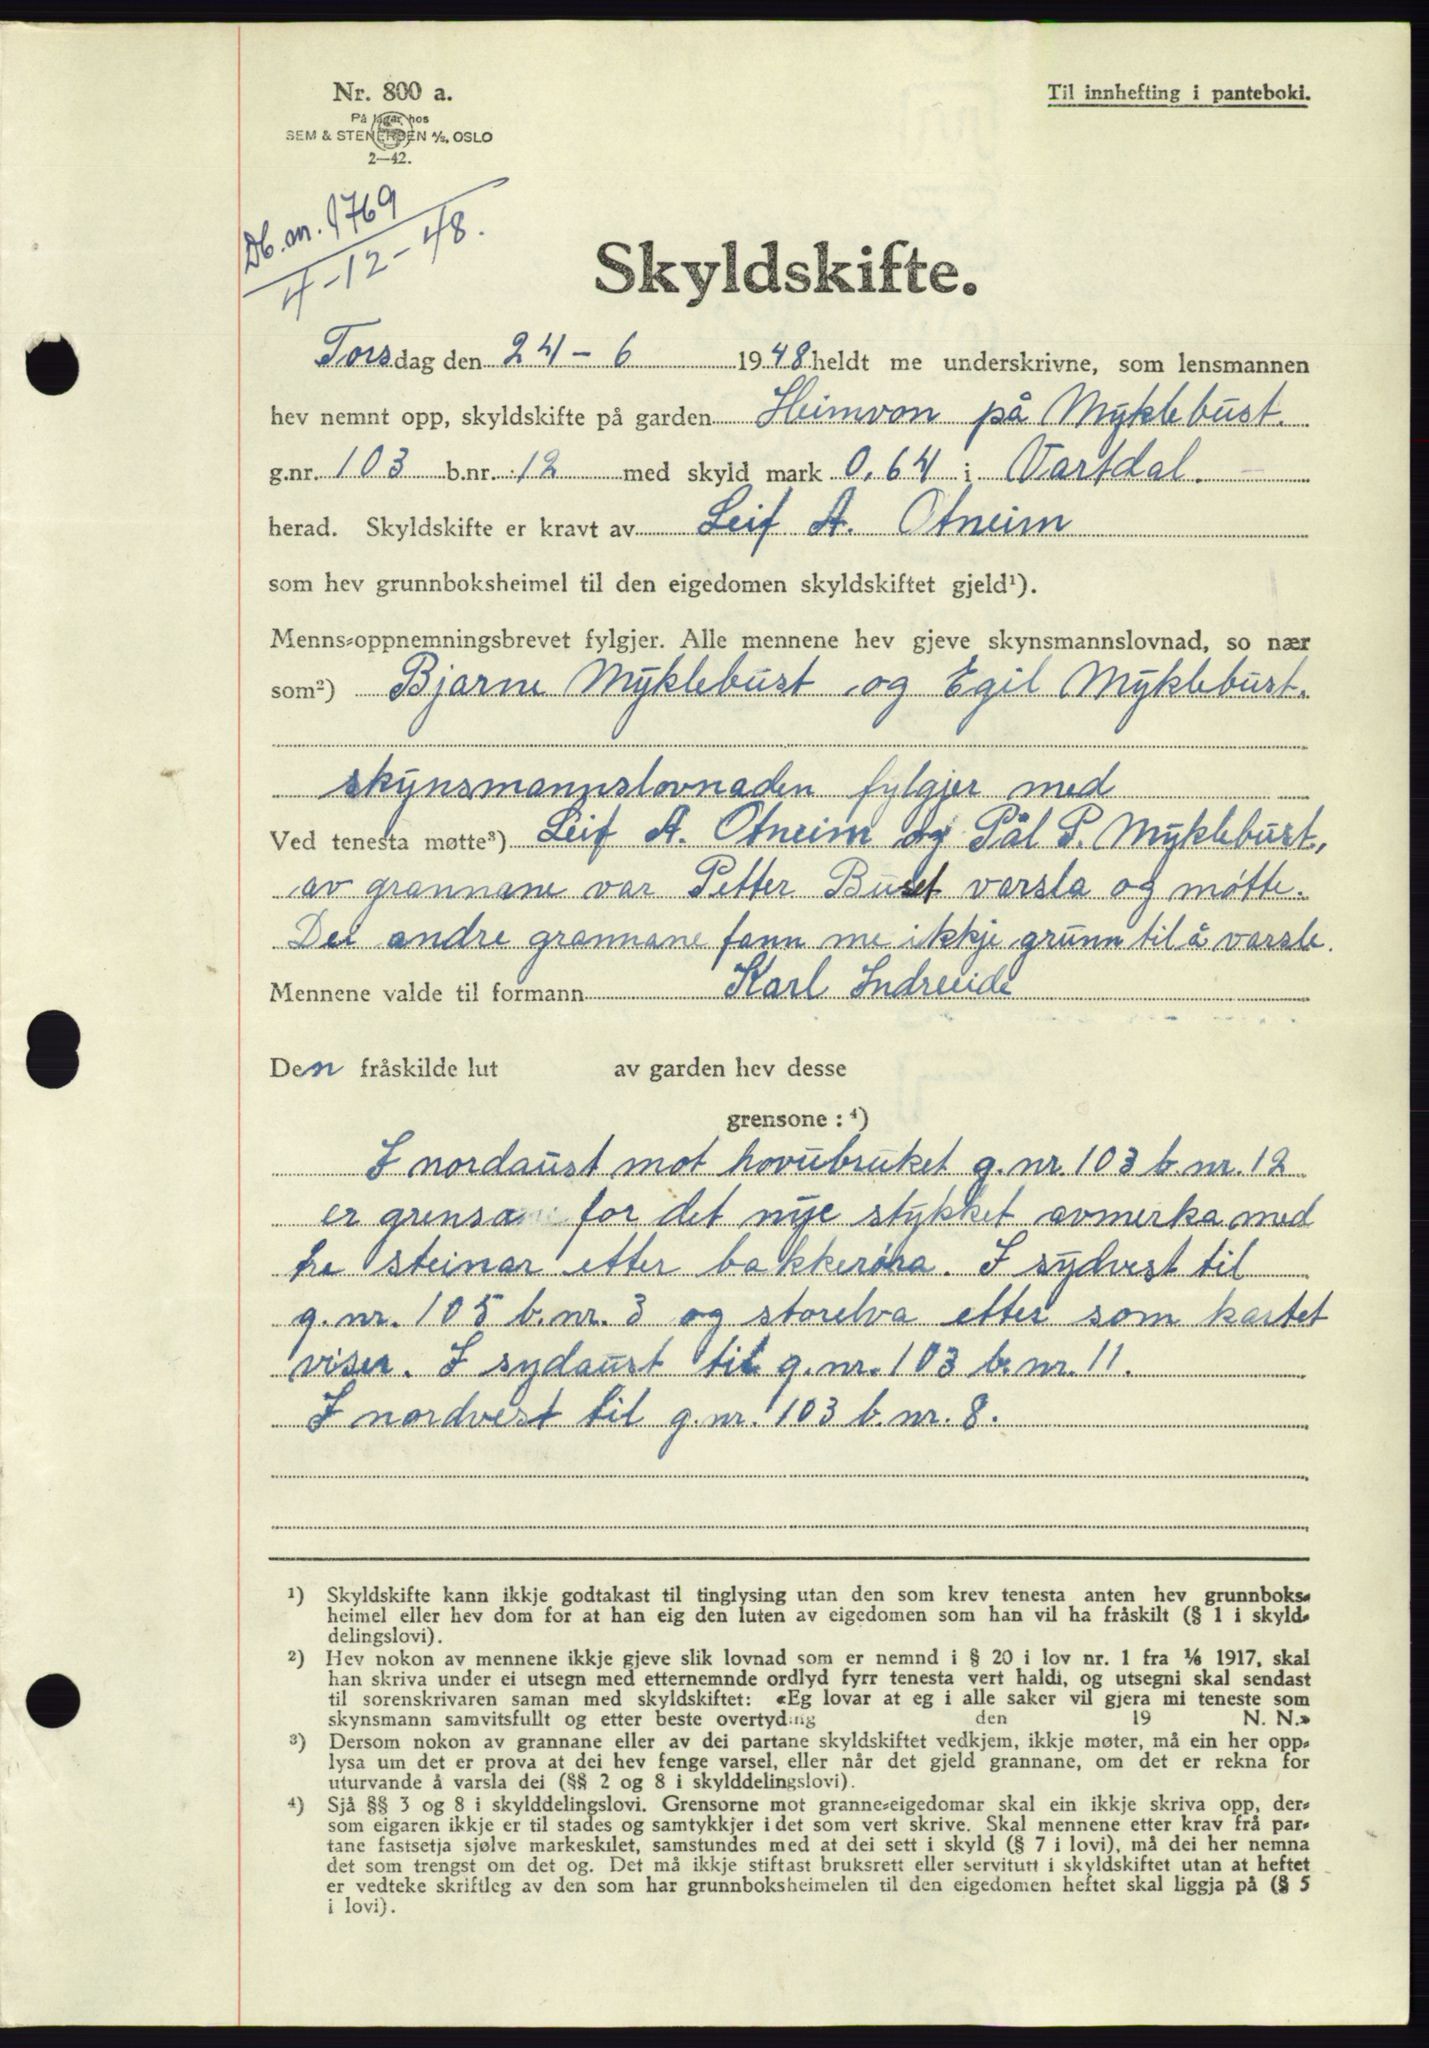 Nr. 800 a.
Til innhefting i panteboki.
På lager hos
SEM & STENERSEN A/S, OSLO
2—42.
Db. nr. 1769
4-12-48.
Skyldskifte.
Torsdag den 24-6 1948 heldt me underskrivne, som lensmannen
hev nemnt opp, skyldskifte på garden Heimvon på Myklebust.
g.nr. 103 b.nr. 12 med skyld mark 0,64 i Vartdal.
herad. Skyldskifte er kravt av Leif A. Otneim
som hev grunnboksheimel til den eigedomen skyldskiftet gjeld¹).
Menns-oppnemningsbrevet fylgjer. Alle mennene hev gjeve skynsmannslovnad, so nær
som²) Bjarne Myklebust og Egil Myklebust.
skynsmannslovnaden fylgjer med
Ved tenesta møtte³) Leif A. Otneim og Pål P. Myklebust,
av grannane var Petter Buset varsla og møtte.
Dei andre grannane fann me ikkje grunn til å varsle.
Mennene valde til formann Karl Indreeide
Den fråskilde lut av garden hev desse
grensone : ⁴)
I nordaust mot hovubruket g.nr. 103 b.nr. 12
er grensa for det nye stykket avmerka med
tre steinar etter bakkerøra. I sydvest til
g.nr. 105 b.nr. 3 og storelva etter som kartet
viser. I sydaust til g.nr. 103 b.nr. 11.
I nordvest til g.nr. 103 b.nr. 8.
¹) Skyldskifte kann ikkje godtakast til tinglysing utan den som krev tenesta anten hev grunnboks-
heimel eller hev dom for at han eig den luten av eigedomen som han vil ha fråskilt (§ 1 i skyld-
delingslovi).
²) Hev nokon av mennene ikkje gjeve slik lovnad som er nemnd i § 20 i lov nr. 1 fra 1/6 1917, skal
han skriva under ei utsegn med etternemnde ordlyd fyrr tenesta vert haldi, og utsegni skal sendast
til sorenskrivaren saman med skyldskiftet: «Eg lovar at eg i alle saker vil gjera mi teneste som
skynsmann samvitsfullt og etter beste overtyding den 19 N. N.»
³) Dersom nokon av grannane eller av dei partane skyldskiftet vedkjem, ikkje møter, må ein her opp-
lysa um det er prova at dei hev fenge varsel, eller når det gjeld grannane, om det er rekna for
uturvande å varsla dei (§§ 2 og 8 i skylddelingslovi).
⁴) Sjå §§ 3 og 8 i skylddelingslovi. Grensorne mot granne-eigedomar skal ein ikkje skriva opp, der-
som eigaren ikkje er til stades og samtykkjer i det som vert skrive. Skal mennene etter krav frå par-
tane fastsetja sjølve markeskilet, samstundes med at dei sett i skyld (§ 7 i lovi), må dei her nemna
det som trengst om det og. Det må ikkje stiftast bruksrett eller servitutt i skyldskiftet utan at heftet
er vedteke skriftleg av den som har grunnboksheimelen til den eigedomen heftet skal liggja på (§ 5
i lovi).